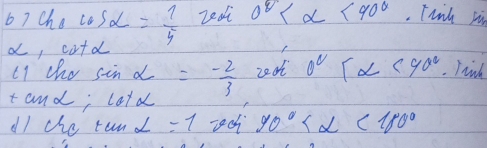 b) Cho cos α = 1/5 với 0° < α < 90°. Tính sin
α, cot α
c) cho sin α = -2/3 với 0° < α < 90°. Tính
tan α; cot α
d) cho tan α = 1 với 90° < α < 180°